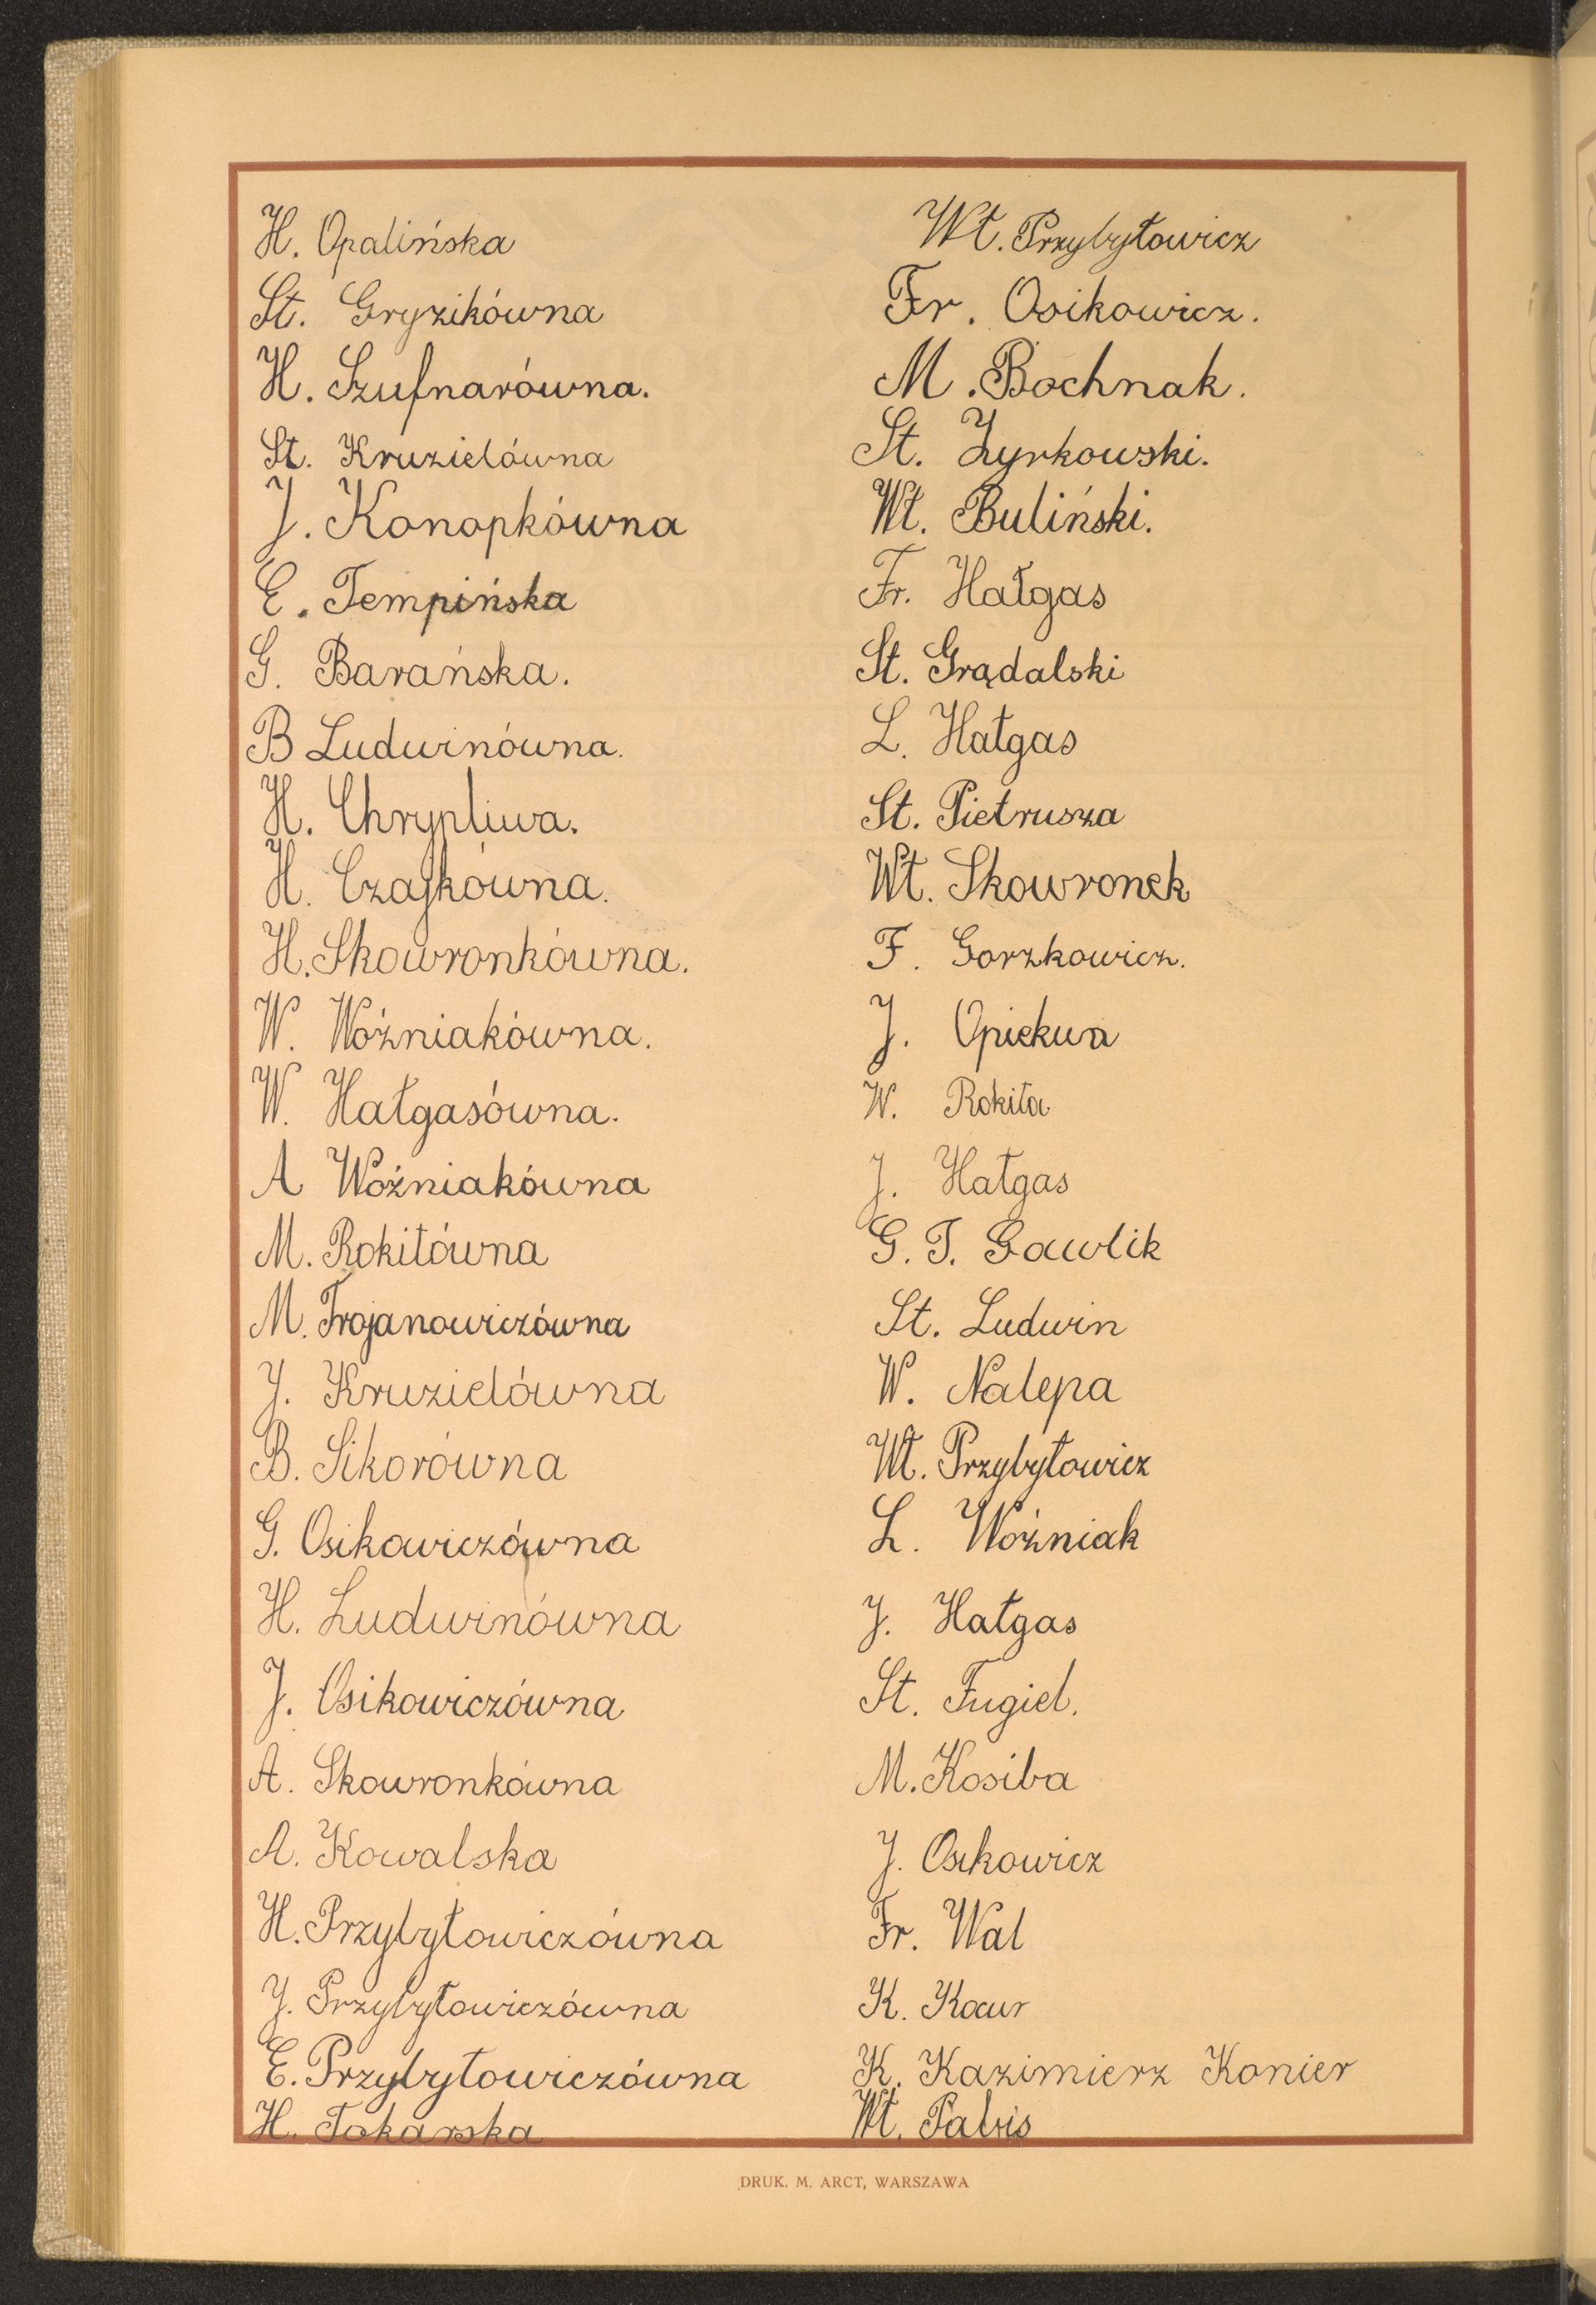 H. Opalińska
St. Gryzikówna
H. Szufnarówna.
St. Kruzielówna
J. Konopkówna
E. Tempińska
G. Barańska.
B Ludwinówna.
H. Chrypliwa.
H. Czajkówna.
H. Skowronkówna.
W. Woźniakówna.
W. Hałgasówna.
A Woźniakówna
M. Rokitówna
M. Trojanowiczówna
J. Kruzielówna
B. Sikorówna
G. Osikowiczówna
H. Ludwinówna
J. Osikowiczówna
A. Skowronkówna
A. Kowalska
H. Przybyłowiczówna
J. Przybyłowiczówna
E. Przybyłowiczówna
H. Tokarska
Wł. Przybyłowicz
Fr. Osikowicz.
M. Bochnak.
St. Żyrkowski.
Wł. Buliński.
Fr. Hałgas
St. Grądalski
L. Hałgas
St. Pietrusza
Wł. Skowronek
F. Gorzkowicz.
J. Opiekun
W. Rokita
J. Hałgas
G. T. Gawlik
St. Ludwin
W. Nalepa
Wł. Przybyłowicz
L. Woźniak
J. Hałgas
St. Fugiel.
M. Kosiba
J. Osikowicz
Fr. Wal
K. Kocur
K. Kazimierz Konier
Wł. Pabis
DRUK. M. ARCT, WARSZAWA